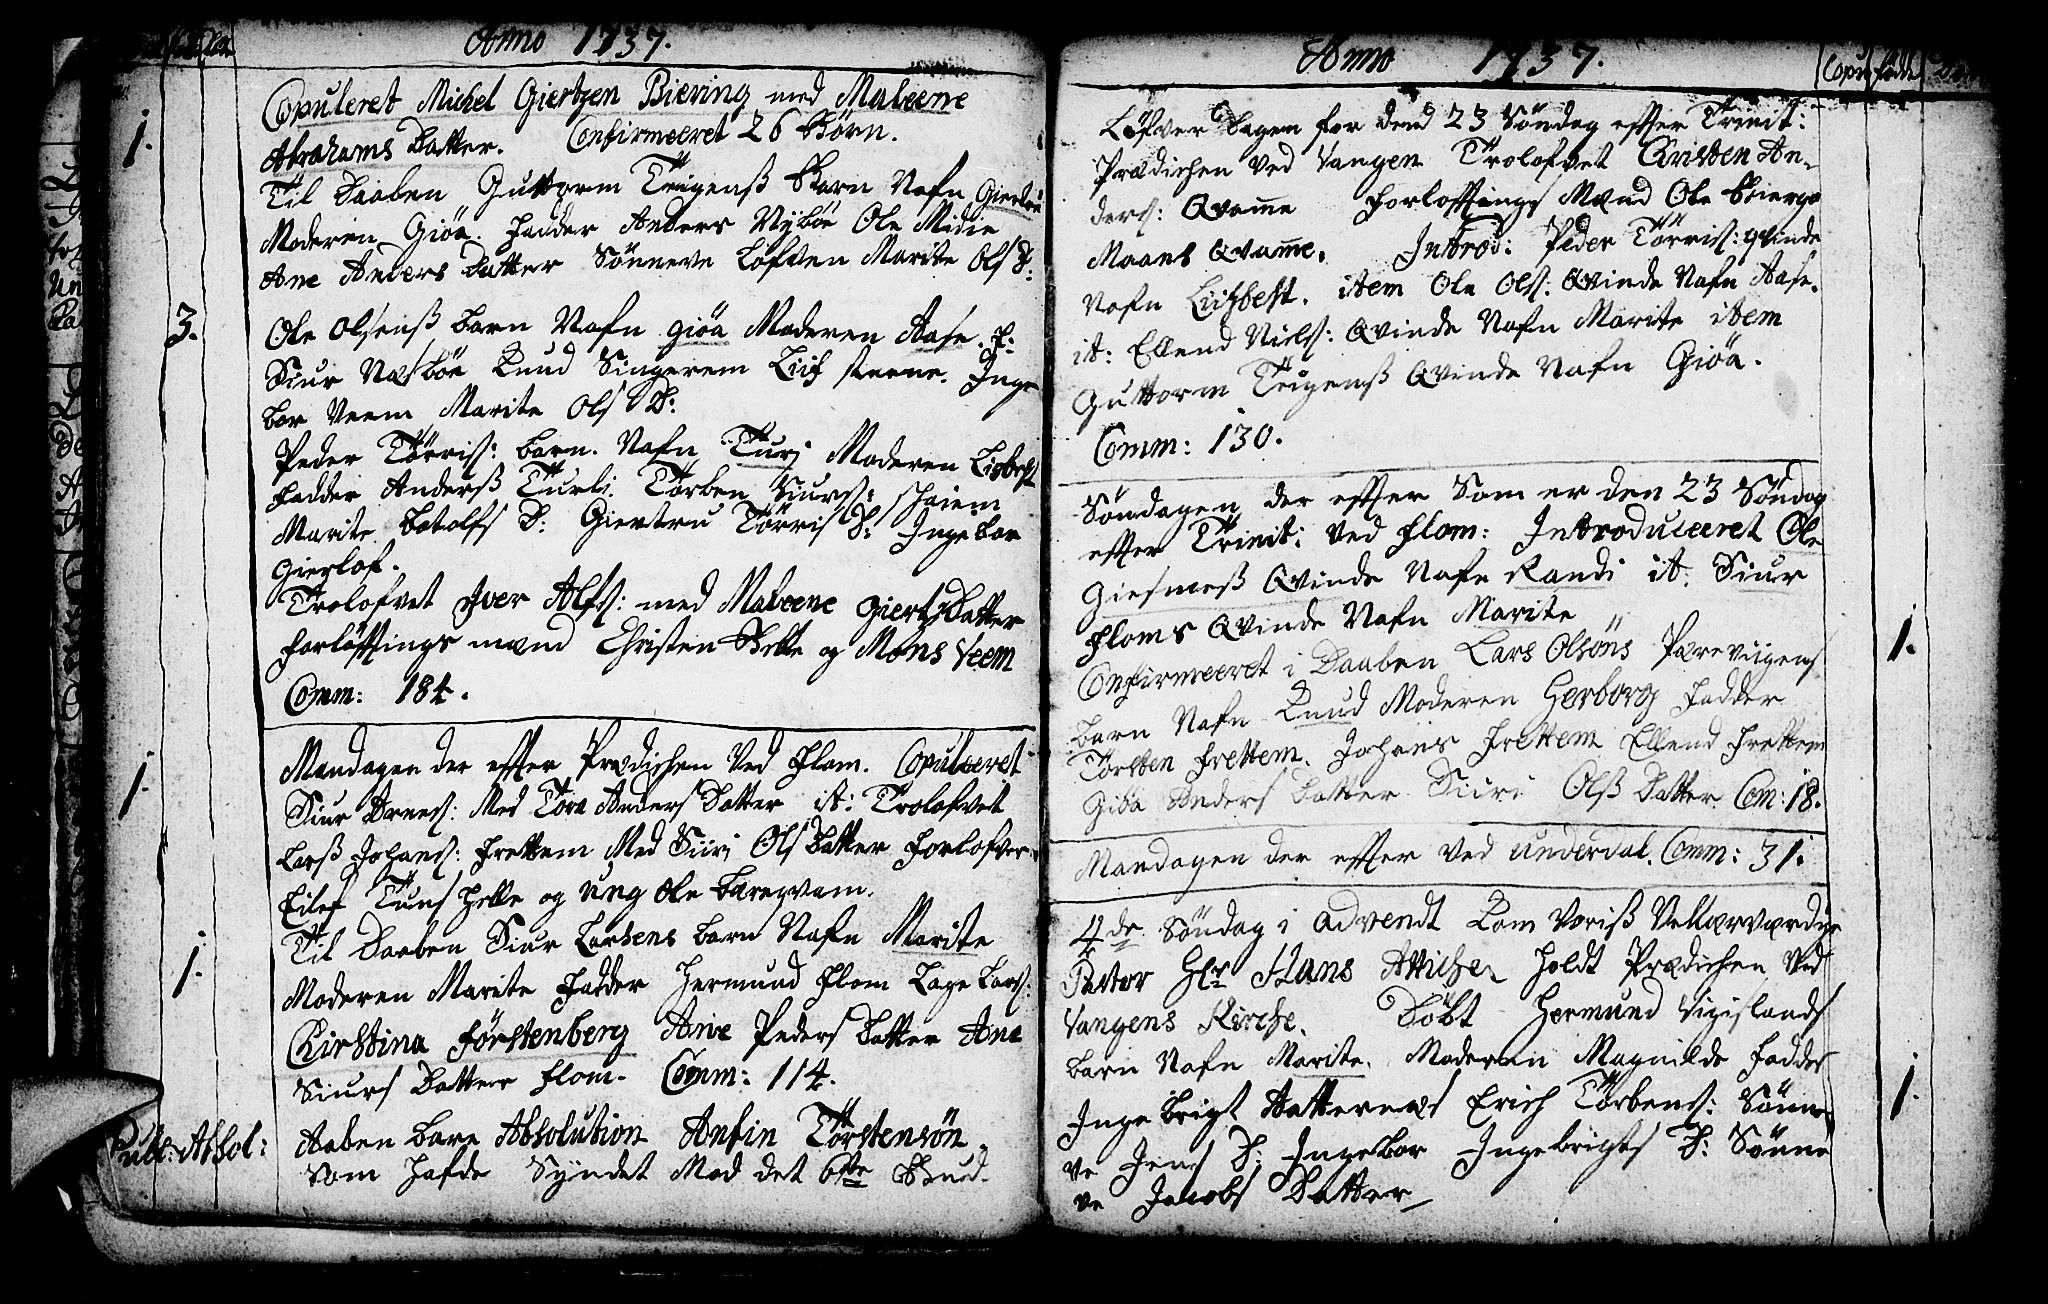 Anno 1737.
Copuleret Michel Giertzen Biering med Maleene
1. Abrahams Datter. Confirmeeret 26 Børn.
Til Daaben Guttorm Teigenß Barn Nafn Giertru
Moderen Giöa. Fadder Anders Nyböe Ole Midie
Ane Anders Datter Sönneve Loftten Marite Ols D:
3. Ole Olsenß barn Nafn giöa Moderen Aase. F:
Siur Næsböe Knud Singerem Liif steene. Inge
bor Veem Marite Ols D:
Peder Törriss: barn. Nafn Turj Moderen Lisbeht
Fadder Anderß Turli. Torben Siurss:
Marite Botolfs D: Giertru Törris D: Ingebor
Gierlof.
Trolofvet Iver Alfs: med Maleene Giertz Datter
Forlöftings mænd Christen Helle og Mons Veem
Comm: 184.
Mandagen der efter Prædichen Ved Flom. Copuleeret
1. Siur Arnes: Med Tora Anders Datter it: Trolofvet
Larß Johans: Frettem Med Siiri Ols Datter Forlofver
Eilef Tuns Helle og ung Ole bareqvam.
Til Daaben Siur Larsens barn Nafn Marite
1. Moderen Marite Fadder Hermund Flom Lage Lars:
Kirstina Förstenberg Anne Peders Datter Ane
Siurs Datter Flom. Comm: 114.
Publ: Absol: Aaben bare Absolution Anfin Törstensön
som hafde Syndet Mod det 6te Bud.
Anno 1737.
Copul födde
Löfver Dagen for dend 23 Söndag efter Trinit:
Prædichen Ved Vangen Trolofvet Christen An-
ders: Qvamme Forloftings Mænd Ole Bierge
Maans Qvamme. Introd: Peder Törris: qvinde
Nafn Liisbeht. item Ole Ols: Qvinde Nafn Aase.
it: Ellend Niels: Qvinde Nafn Marite item
Guttorm Teigenß Qvinde Nafn Giöa.
Comm: 130.
Söndagen der efter Som er den 23 Söndag
efter Trinit: Ved Flom: Introduceret Ole
Giesmeß Qvinde Nafn Randi it: Siur
Floms Qvinde Nafn Marite
1. Confirmeeret i Daaben Lars Olsöns Pareviigens
barn Nafn Knud Moderen Herborg Fadder
Törsten Frettem. Johans Frettem Ellend Frettem
Giöa Anders Datter Siiri Olß Datter Com: 18.
Mandagen der efter Ved underdal. Comm: 31.
4de Söndag i Advendt Kom Voriß Velærværdige
Pastor Hr Hans holdt Prædichen Ved
Vangens Kirche. Döbt Hermund Vigislands
barn Nafn Marite. Moderen Magnilde Fadder
1. Inge brigt Aatternæs Erich Törbens: Sönne
ve Jens D: Ingebor Ingebrigts D: Sönne
ve Jacobs Datter